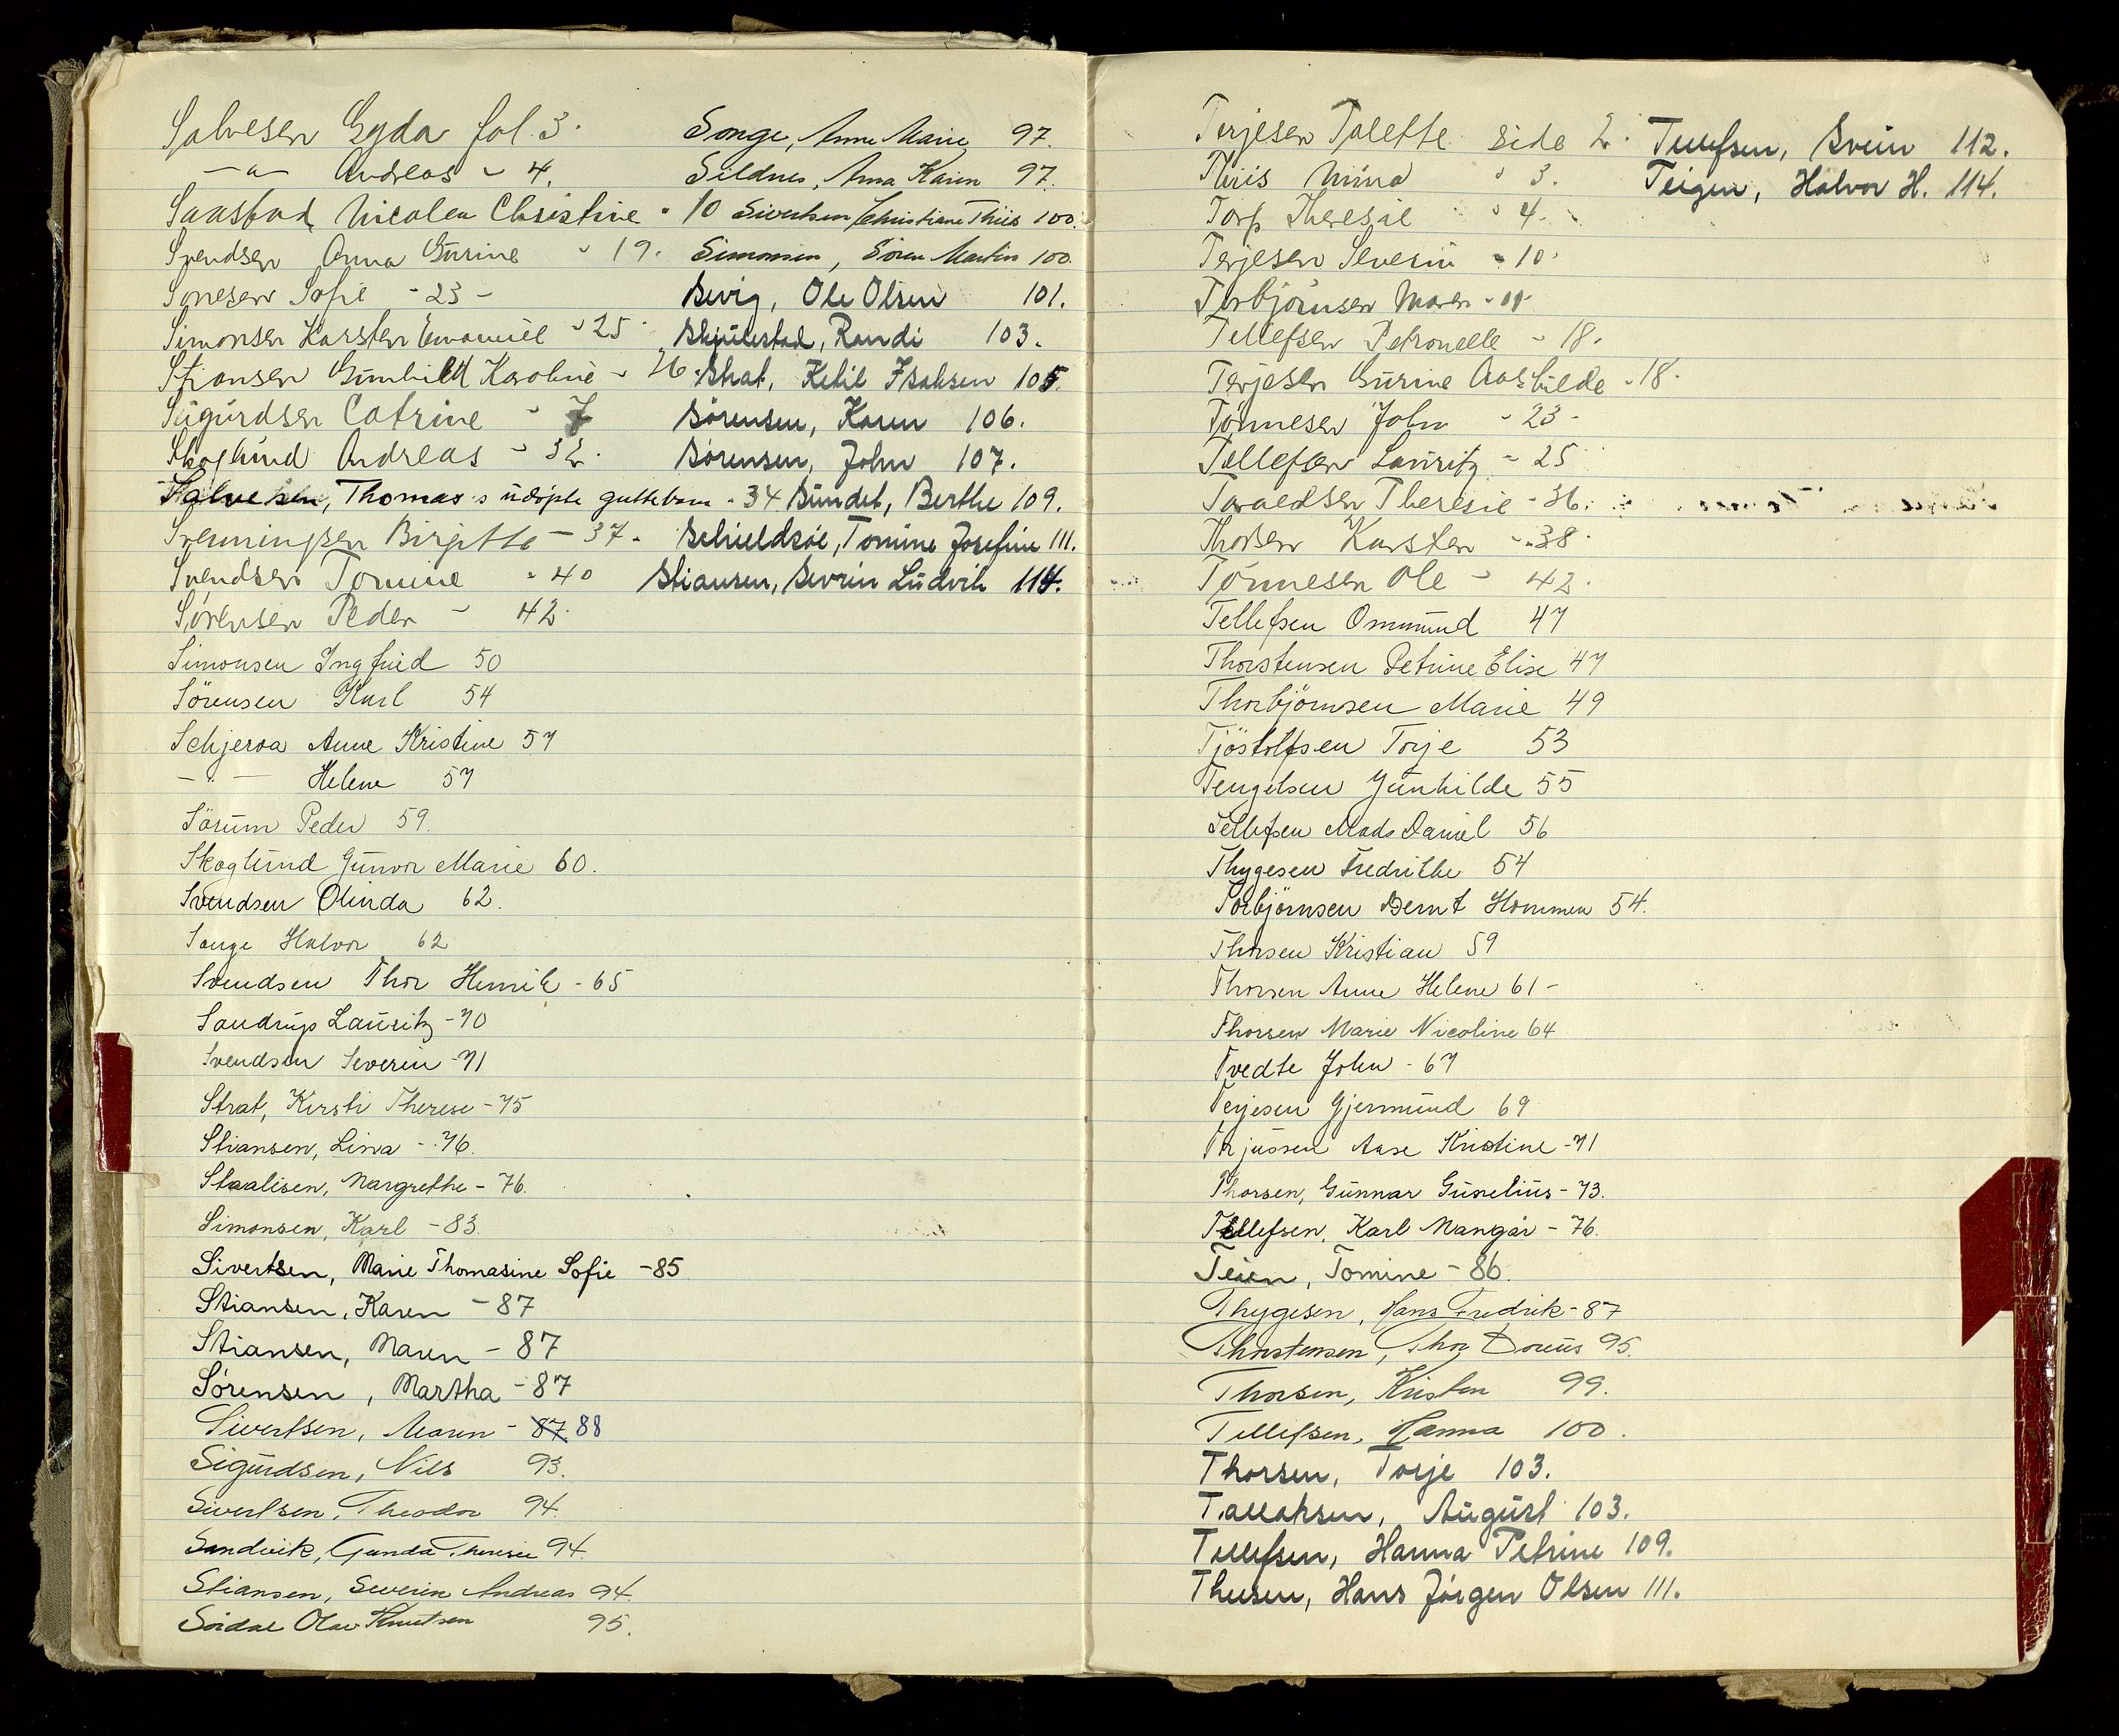 Salvesen Gyda fol. 3.
—"— Andreas - 4.
Saastad Nicolea Christine - 10
Svendsen Anna Gurine - 19.
Sonesen Sofie - 23 -
Simonsen Karsten Emanuel - 25
Stiansen Gunhild Karoline - 26.
Sigurdsen Catrine - 7
Skoglund Andreas - 32.
Salvesen, Thomas's udöpte guttebarn - 34
Svenningsen Birgitte - 37.
Svendsen Tomine - 40
Sörensen Peder - 42.
Simonsen Ingfrid 50
Sörensen Karl 54
Schjeroa Anne Kristine 57
— " — Helene 57
Sörum Peder 59.
Skoglund Gunvor Marie 60.
Svendsen Olinda 62.
Songe Halvor 62
Svendsen Thor Henrik - 65
Sandrup Lauritz - 70
Svendsen Severin - 71
Strat, Kirsti Therese - 75
Stiansen, Lina - 76.
Staalisen, Margrethe - 76.
Simonsen, Karl - 83.
Sivertsen, Marie Thomasine Sofie - 85
Stiansen, Karen - 87
Stiansen, Maren - 87
Sörensen, Martha - 87
Sivertsen, Maren - 87 88
Sigurdsen, Nils 93.
Sivertsen, Theodor 94.
Sandvik, Gunda Theresie 94.
Stiansen, Severin Andreas 94.
Sördal Olav Knutsen 95.
Songe, Anne Marie 97.
Sildnes, Anna Karen 97.
Sivertsen Christiane Thiis 100.
Simonsen, Sören Martin 100.
Sevig, Ole Olsen 101.
Skjulestad, Randi 103.
Skat, Ketil Isaksen 105.
Sörensen, Karen 106.
Sörensen, John 107.
Sundet, Berthe 109.
Schieldsöe, Tomine Josefine 111.
Stiansen, Sevrin Ludvik 114.
Terjesen Talette side 2.
Thiis Mina " 3.
Torp Theresie " 4.
Terjesen Severin - 10.
Torbjörnsen Maren - 11
Tellefsen Petronelle - 18.
Terjesen Gurine Aashilde - 18.
Tönnesen John - 23 -
Tellefsen Lauritz - 25
Tavaldsen Theresie - 36.
Thorsen Karsten - 38.
Tönnesen Ole - 42.
Tellefsen Ommund 47
Thorstensen Petrine Elise 47
Thorbjörnsen Marie 49
Tjöstolfsen Torje 53
Tengelsen Gunhilde 55
Tellefsen Mads Daniel 56
Thygesen Fredrikke 54
Torbjörnsen Bernt Hommen 54.
Thorsen Kristian 59
Thorsen Anne Helene 61 -
Thorsen Marie Nicoline 64
Tvedte John - 67
Terjesen Gjermund 69
Terjussen Aase Kristine - 71
Thorsen, Gunnar Gunelius - 73.
Tellefsen, Karl Mangår - 76.
Teien, Tomine - 86.
Thygesen, Hans Fredrik - 87
Thorstensen, Thor Doreus 95.
Thorsen, Kristen 99.
Tellefsen, Hanna 100.
Thorsen, Torje 103.
Tallaksen, August 103.
Tellefsen, Hanna Petrine 109.
Thuesen, Hans Jörgen Olsen 111.
Tellefsen, Svein 112.
Teigen, Halvor H. 114.